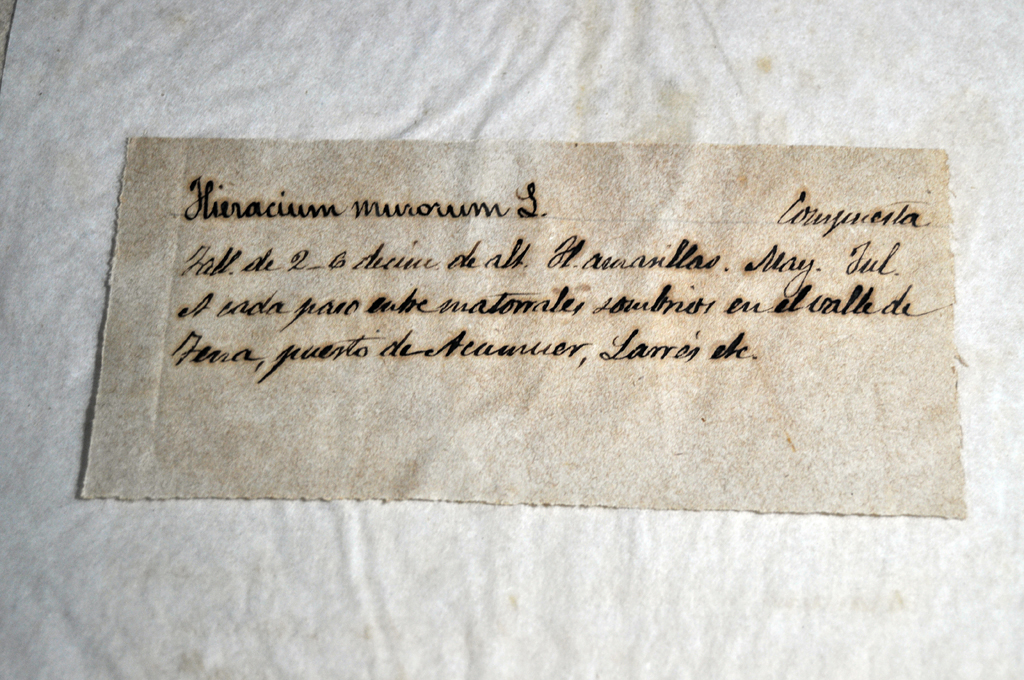 Hieracium murorum L. Compuesta
Tall. de 2-6 decim. de alt. Fl. amarillas. May. Jul.
A cada paso entre matorrales sombrios en el valle de
Tena, puerto de Acumuer, Larrés etc.